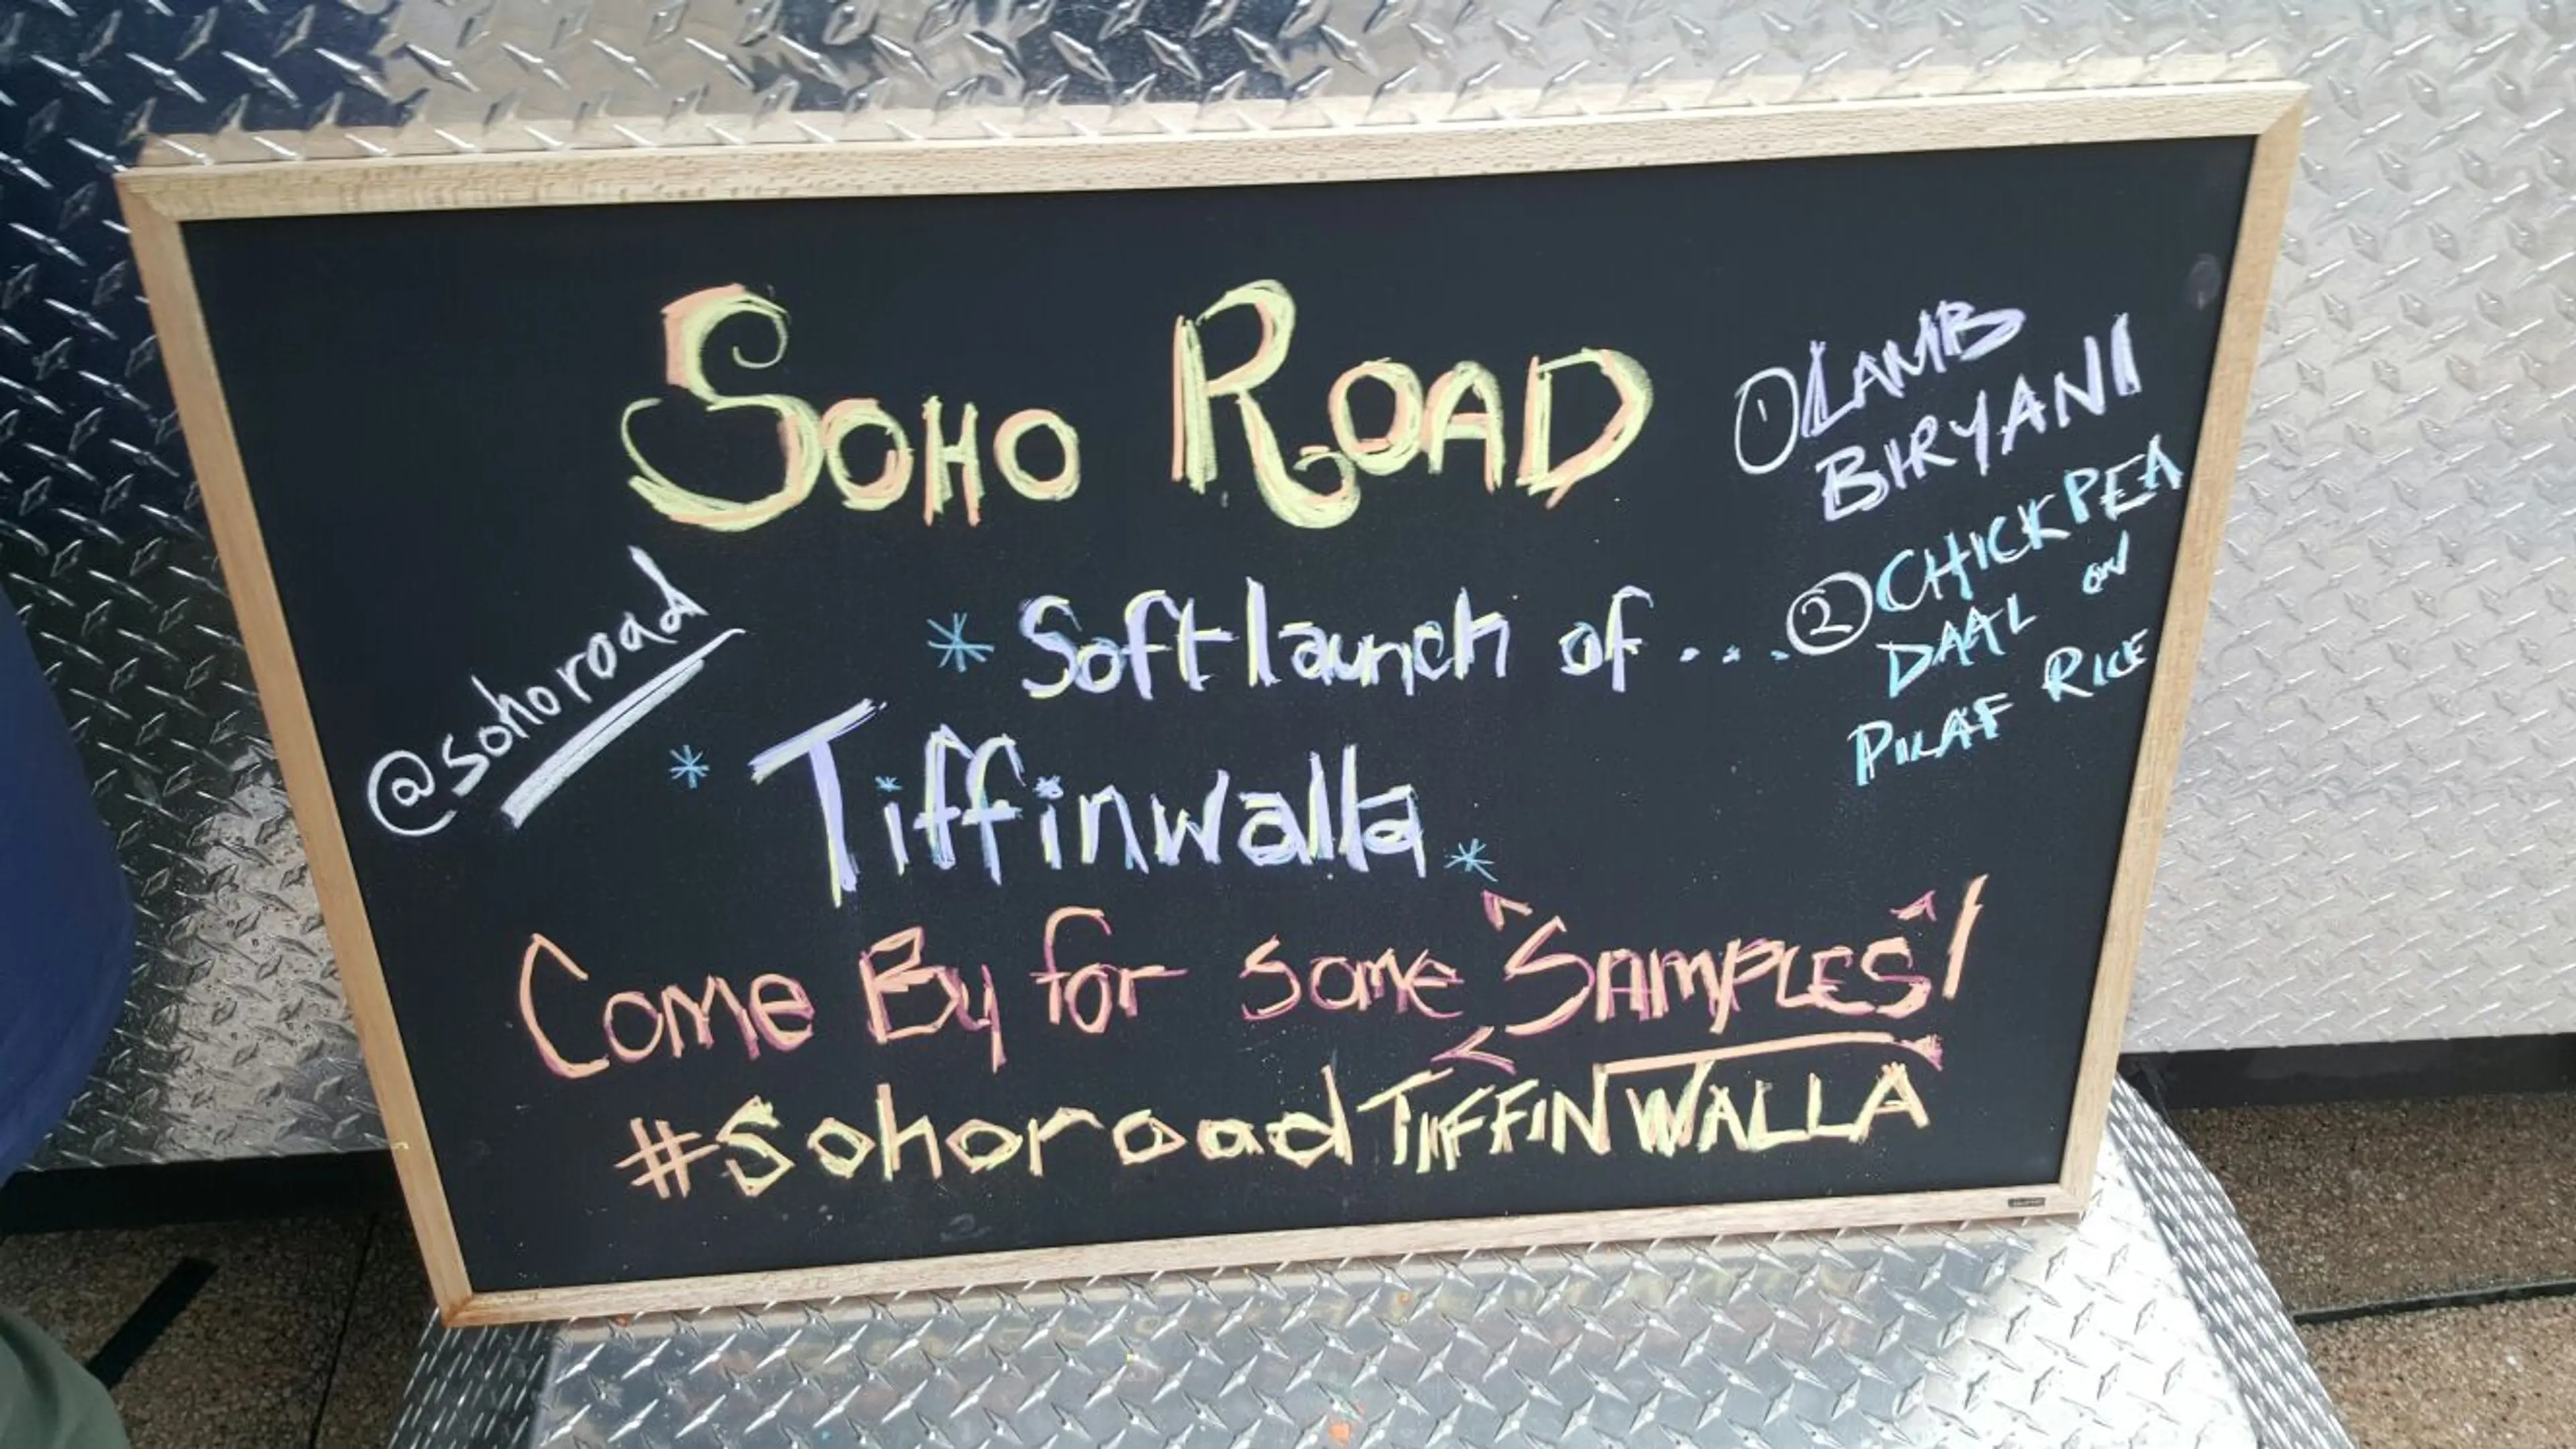 SOHO ROAD
① LAMB
BIRYANI
② CHICKPEA
DAAL ON
PILAF RICE
@sohoroad
* Soft launch of ....
* Tiffinwalla *
Come By for some "SAMPLES"!
#sohoroadTIFFINWALLA